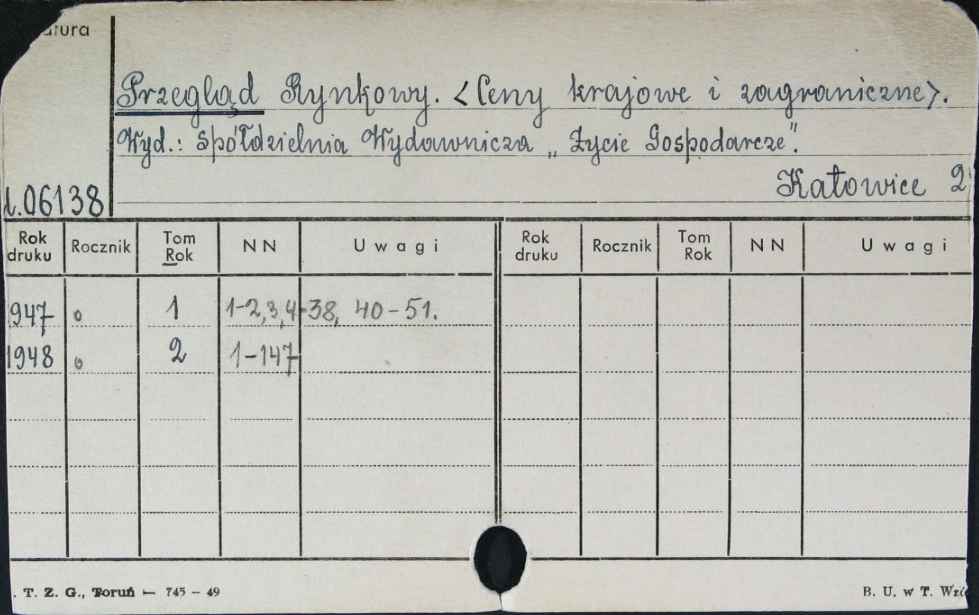 atura
Przegląd Rynkowy. <Ceny krajowe i zagraniczne>.
Wyd.: Spółdzielnia Wydawnicza „Życie Gospodarcze".
Katowice 2
.06138
Rok druku Rocznik Tom Rok NN Uwagi Rok druku Rocznik Tom Rok NN Uwagi
947 o 1 1-2,3,4-38, 40-51.
1948 o 2 1-147
. T. Z. G., Toruń — 745 – 49 B. U. w T.